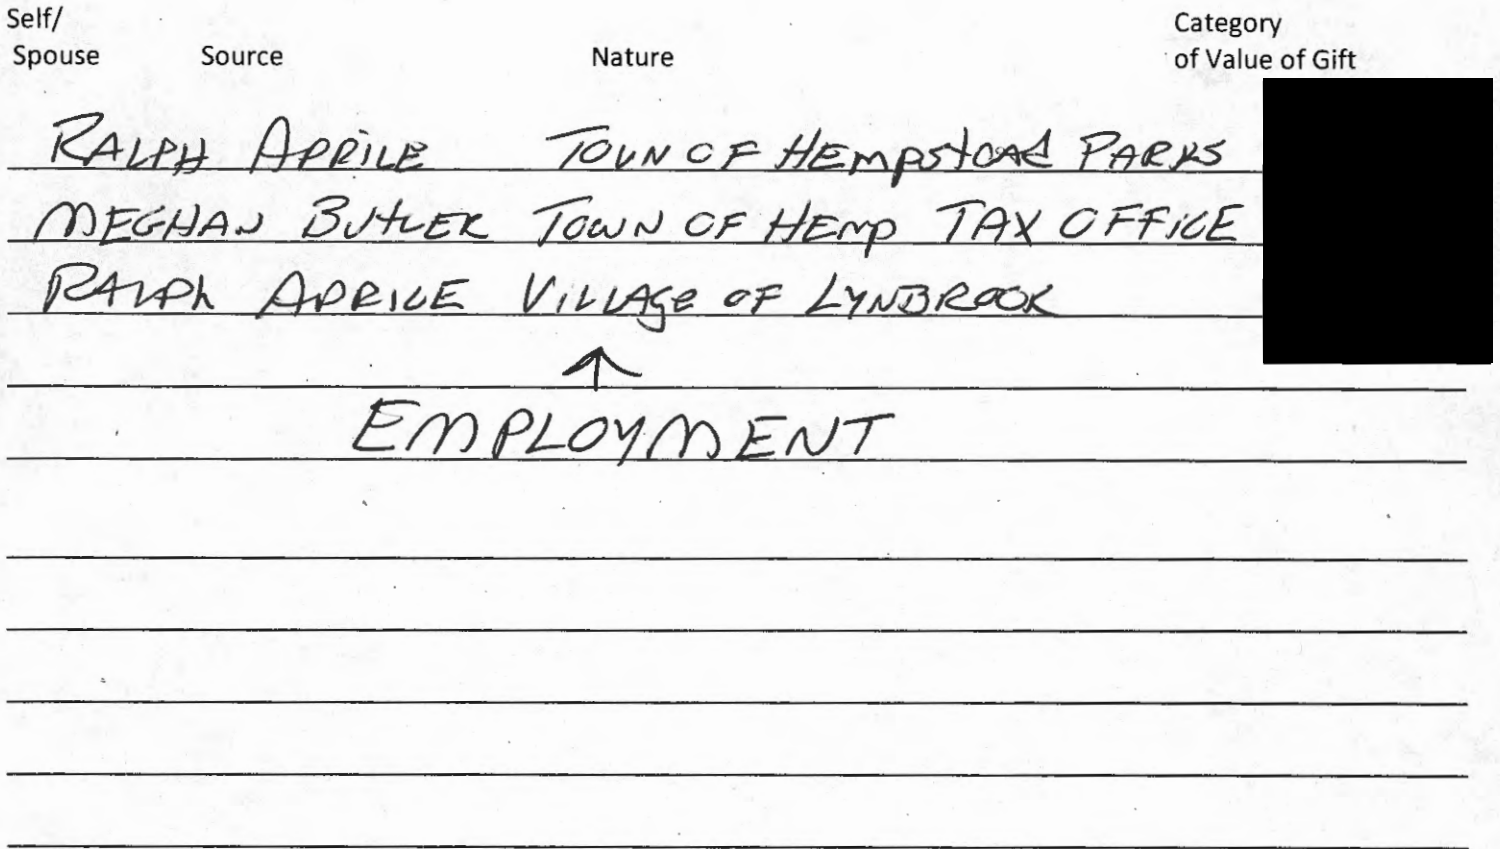 Self/ Category
Spouse Source Nature of Value of Gift
RALPH APRILE TOWN OF HEmpstead PARKS
MEGHAN BUTLER TOWN OF HEmp TAX OFFICE
RALPh APRILE VILLAGe OF LYNBROOK
↑
EMPLOYMENT